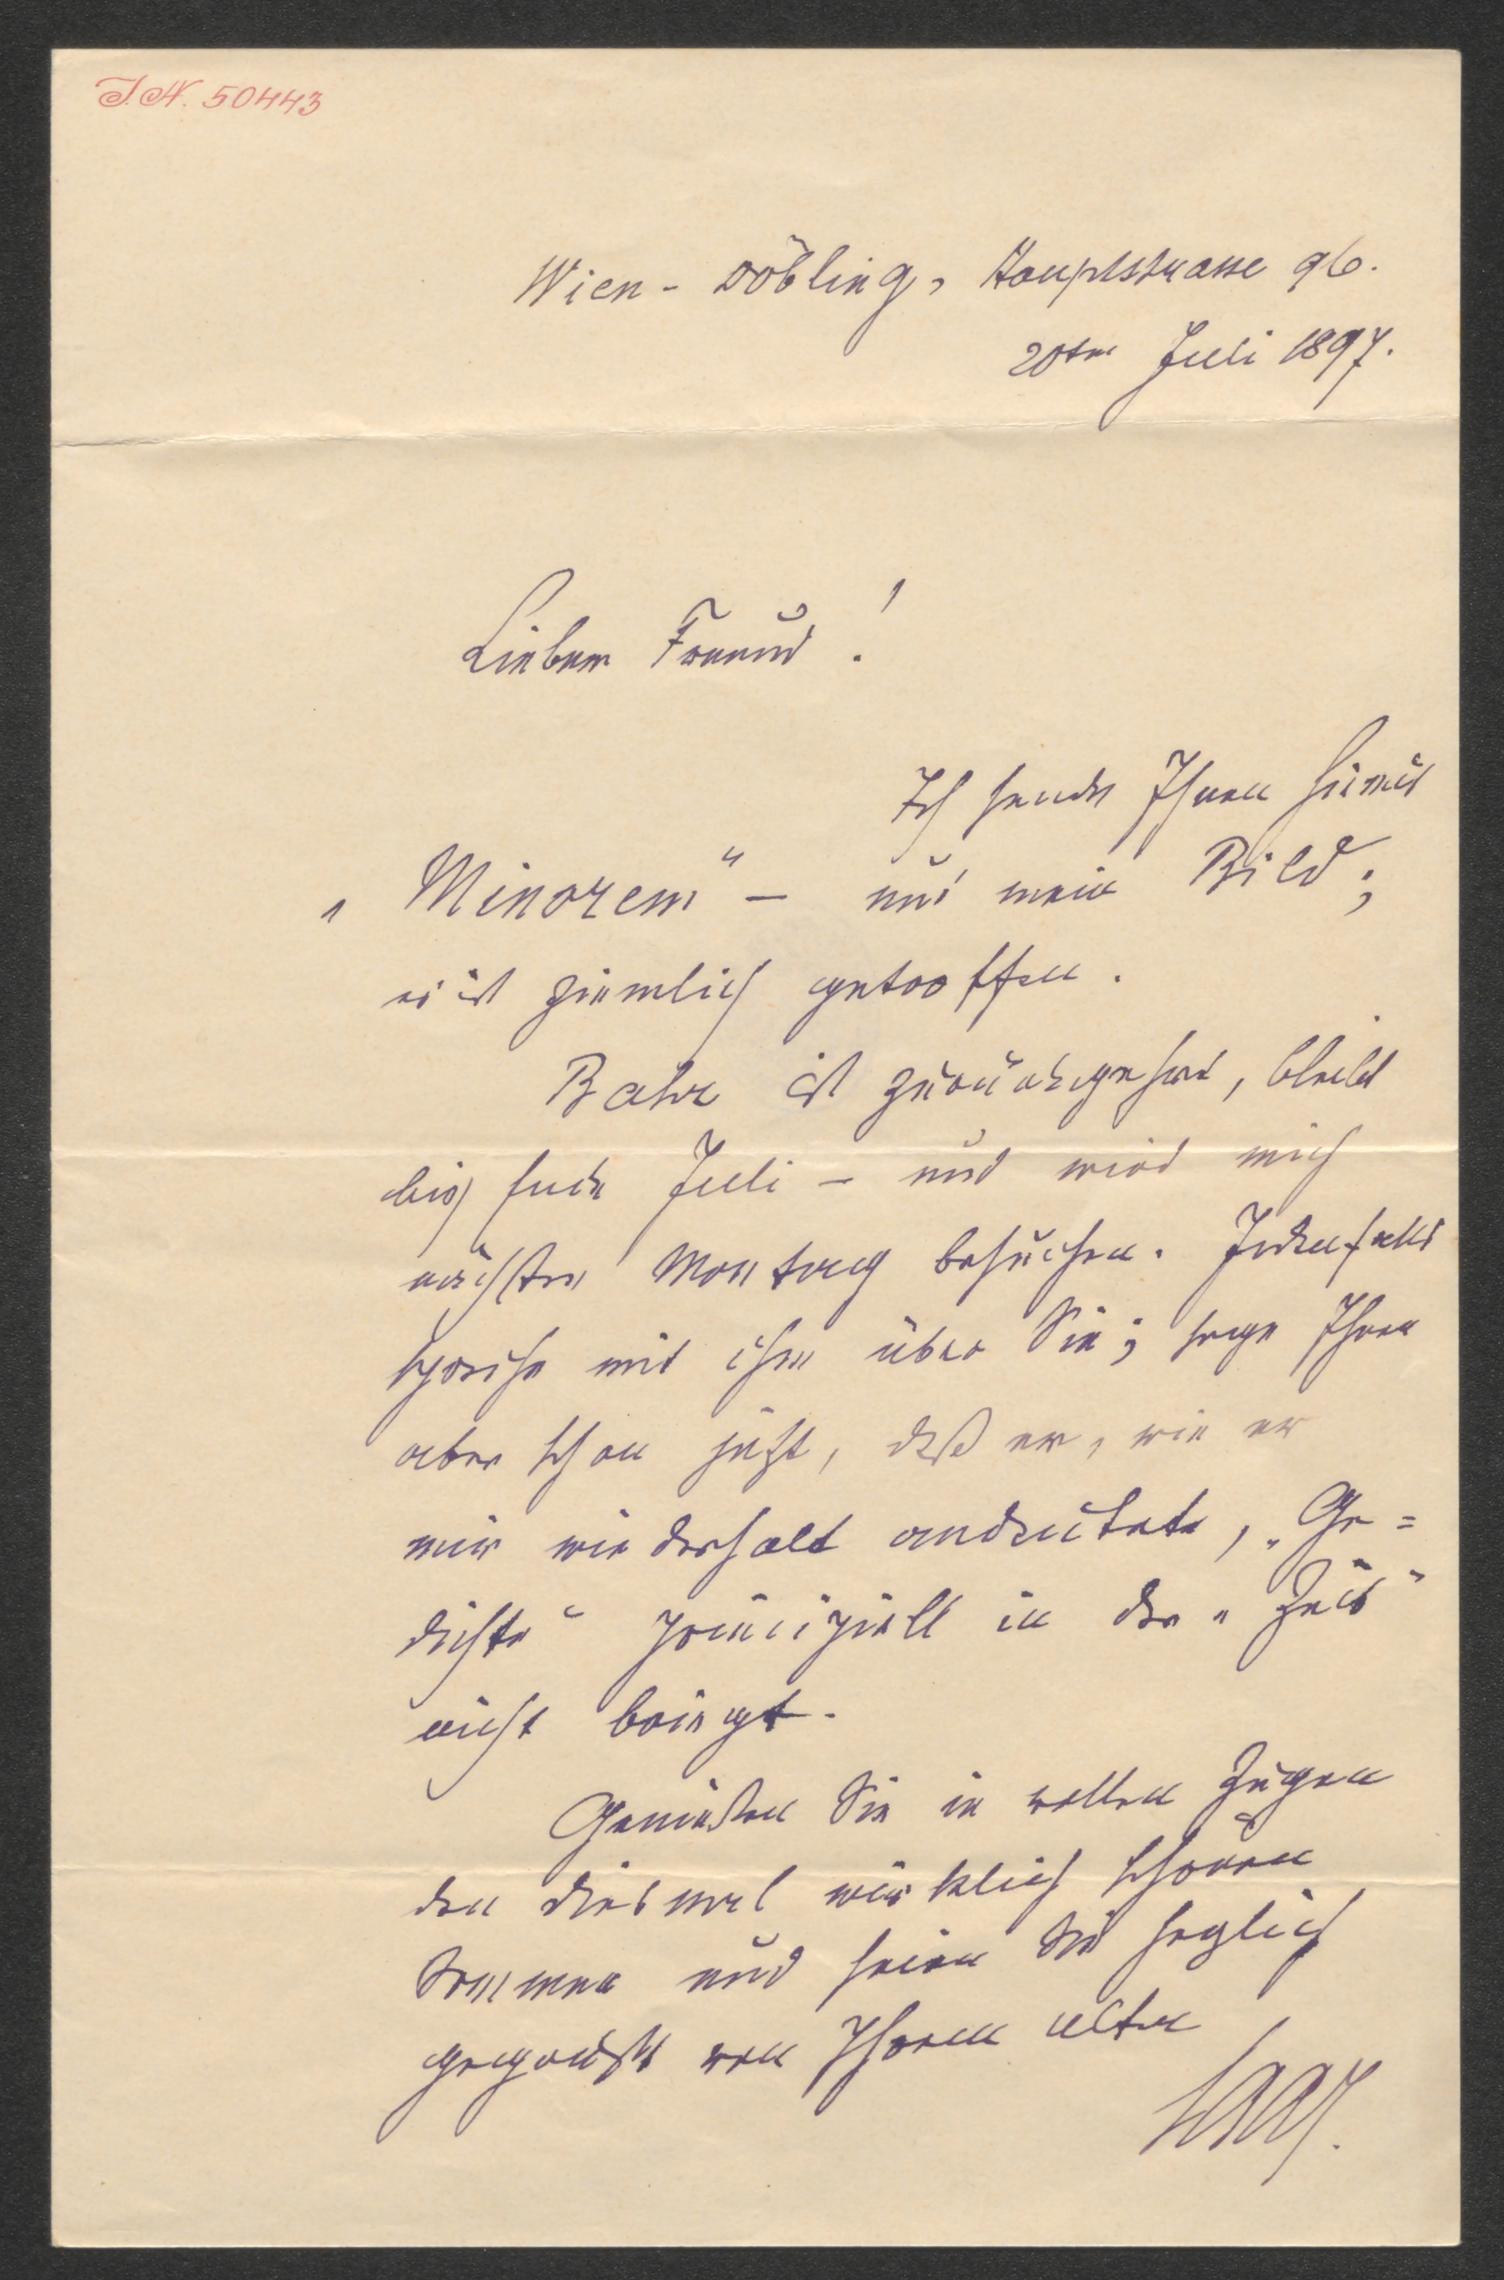 I.N. 50443
Wien-Döbling, Hauptstrasse 96.
20ten Juli 1897.
Lieber Freund!
Ich sende Ihnen hiemit
„Minorem“ – und mein Bild;
es ist ziemlich getroffen.
Bahr ist zurückgekehrt, bleibt
bis Ende Juli – und wird mich
nächsten Montag besuchen. Jedenfalls
spreche mit ihm über Sie; sage Ihnen
aber schon jetzt, daß er, wie er
mir wiederholt andeutete, „Ge=
dichte“ principiell in der „Zeit“
nicht bringt.
Genießen Sie in vollen Zügen
den diesmal wirklich schönen
Sommer und seien Sie herzlich
gegrüßt von Ihrem alten
Saar.